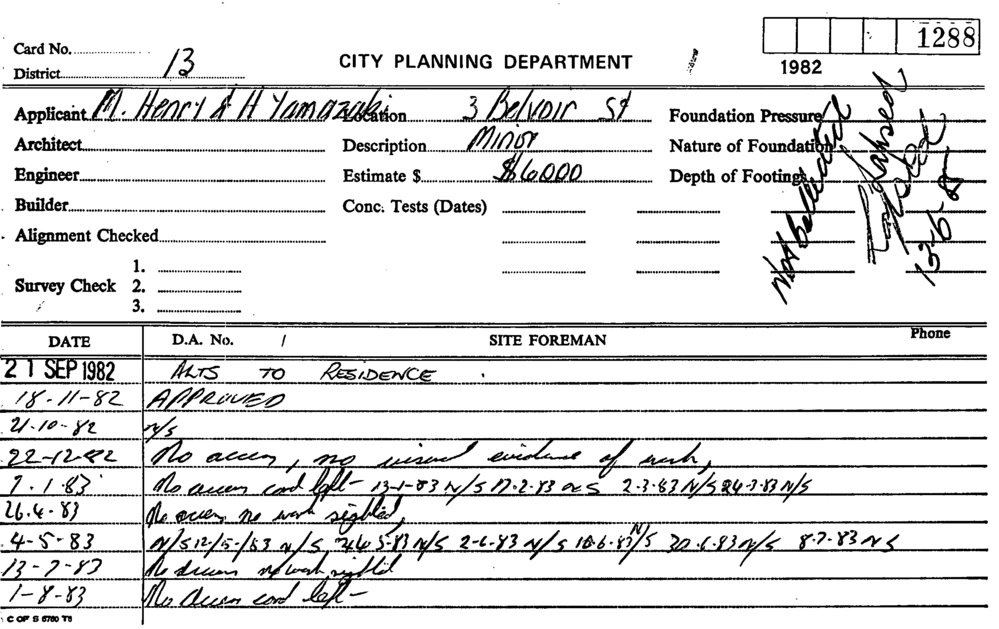 Card No.
District 13
CITY PLANNING DEPARTMENT
1288
1982
Applicant M. Henry & H Yamazaki Location 3 Belvoir St Foundation Pressure
Architect Description Minor Nature of Foundation
Engineer Estimate $ $6000 Depth of Footings
Builder Conc. Tests (Dates)
Alignment Checked
Survey Check 1.
2.
3.
Not
Lapsed
13-6-85
DATE D.A. No. / SITE FOREMAN Phone
21 SEP 1982 ALTS TO RESIDENCE .
18-11-82 APPROVED
21-10-82 N/S
22-12-82 No access, no visual evidence of work,
7.1.83 No access card left - 13-1-83 N/S 17-2-83 N/S 2-3-83 N/S 24-3-83 N/S
26.4.83 No access no work sighted,
4-5-83 N/S 12/5/83 N/S 24 5-83 N/S 2-6-83 N/S 10-6-83 N/S 30.6.83 N/S 8-7-83 N S
13-7-83 No access no work sighted
1-8-83 No access card left -
C OF S 6760 T6